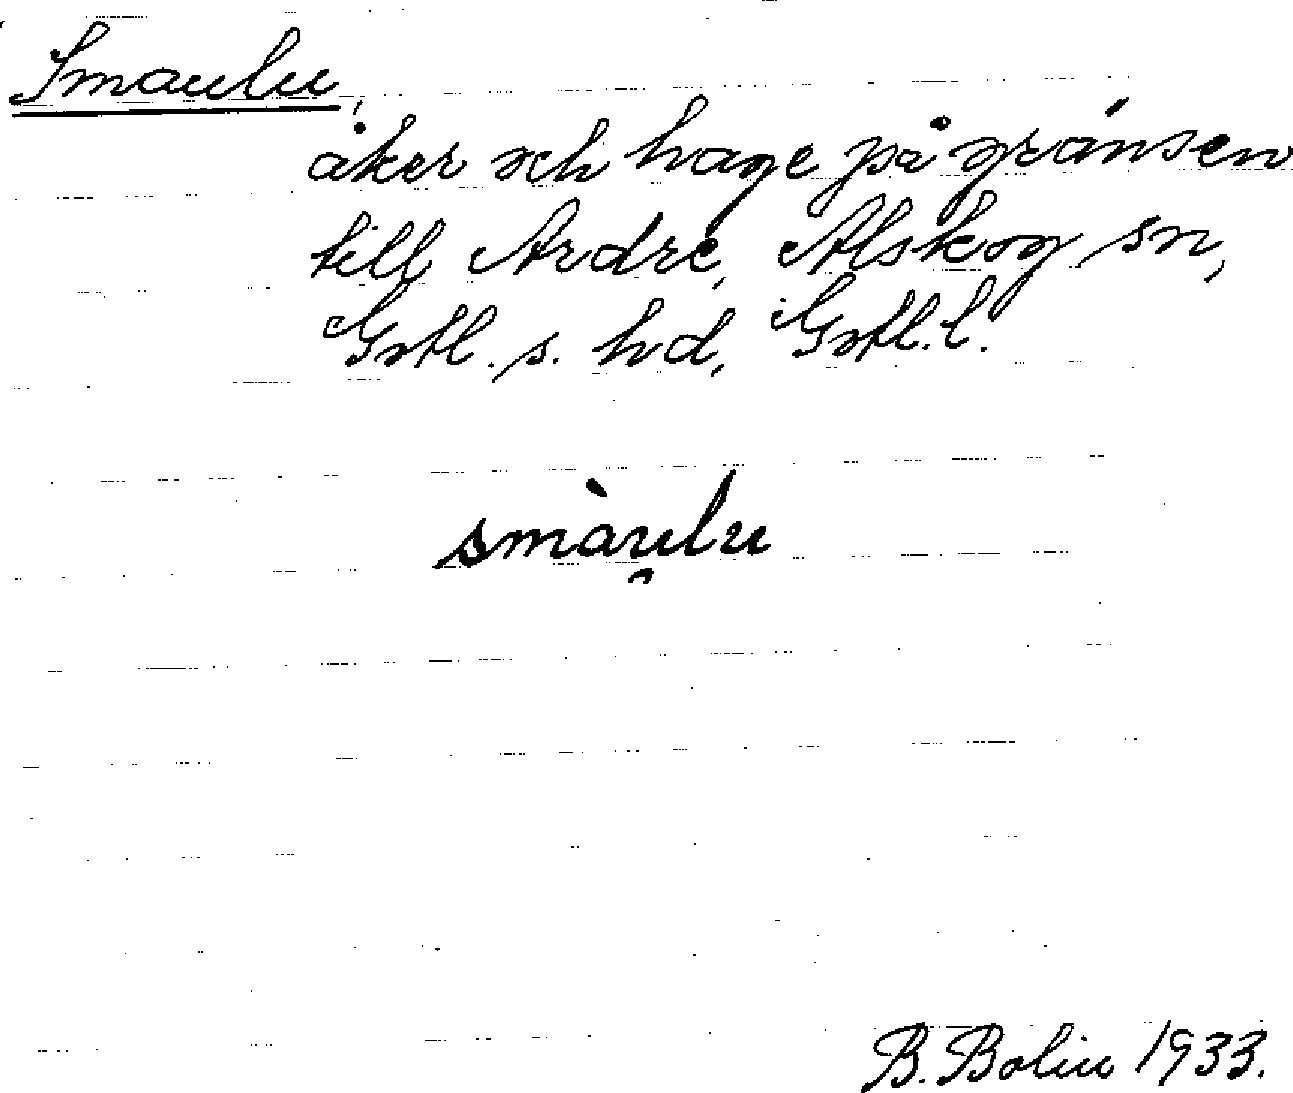 Smaulu,
åker och hage på gränsen
till Ardre, Alskog sn,
Gotl. s. hd, Gotl. l.
smàu̯lu
B. Bolin 1933.